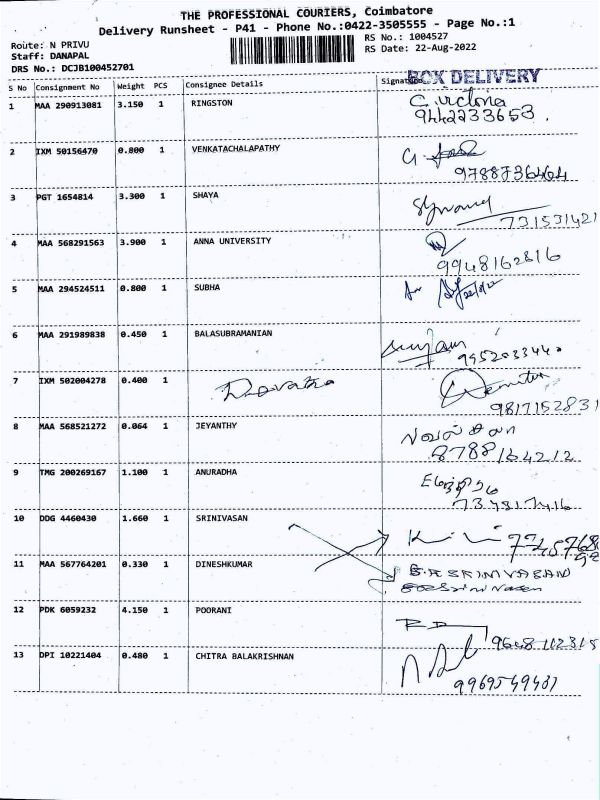 THE PROFESSIONAL COURIERS, Coimbatore
Delivery Runsheet - P41 - Phone No.:0422-3505555 - Page No.:1
Route: N PRIVU
RS No.: 1004527
Staff: DANAPAL
RS Date: 22-Aug-2022
DRS No.: DCJB100452701
BOX DELIVERY
S No Consignment No Weight PCS Consignee Details Signature
1 MAA 290913081 3.150 1 RINGSTON
9442233653
2 IXM 50156470 0.800 1 VENKATACHALAPATHY
9788736464
3 PGT 1654814 3.300 1 SHAYA
731531421
4 MAA 568291563 3.900 1 ANNA UNIVERSITY
9948162816
5 MAA 294524511 0.800 1 SUBHA
6 MAA 291989838 0.450 1 BALASUBRAMANIAN
7 IXM 502004278 0.400 1
9817152831
8 MAA 568521272 0.064 1 JEYANTHY
8788164212
9 TMG 200269167 1.100 1 ANURADHA
734817416
10 DDG 4460430 1.660 1 SRINIVASAN
11 MAA 567764201 0.330 1 DINESHKUMAR
SRINIVASAN
12 PDK 6059232 4.150 1 POORANI
9648112315
13 DPI 10221404 0.480 1 CHITRA BALAKRISHNAN
9969549437